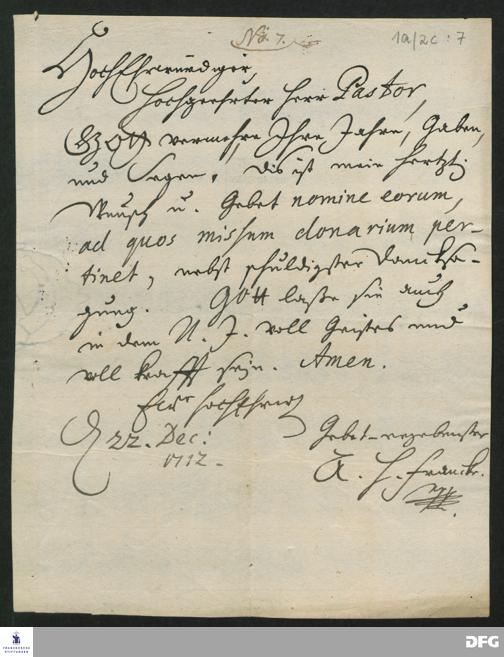 No. 7.
1a/2c : 7
HochEhrwürdiger,
Hochgeehrter Herr Pastor,
GOtt vermehre Ihre Jahre, Gaben,
und Segen, dis ist mein hertzl.
Wunsch u. Gebet nomine eorum,
ad quos missum donarium per-
tinet, nebst schuldigster Dancksa-
gung. GOtt lasse sie auch
in dem N. J. voll Geistes und
voll Krafft seyn. Amen.
Ew. HochEhrw
22. Dec:
1712.
Gebet-ergebenster
A. H. Francke.
FRANCKESCHE
STIFTUNGEN
DFG